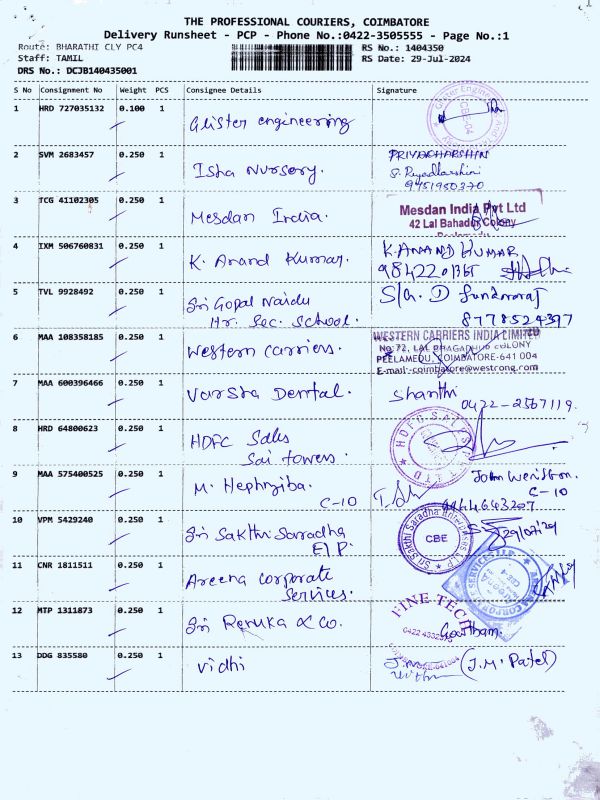 THE PROFESSIONAL COURIERS, COIMBATORE
Delivery Runsheet - PCP - Phone No.:0422-3505555 - Page No.:1
Route: BHARATHI CLY PC4
RS No.: 1404350
Staff: TAMIL
RS Date: 29-Jul-2024
DRS No.: DCJB140435001
S No Consignment No Weight PCS Consignee Details Signature
1 HRD 727035132 0.100 1 Glister engineering
CBE-04
2 SVM 2683457 0.250 1 Isha Nursery.
PRIYADHARSHINI
S. Priyadharshini
9751950370
3 TCG 41102305 0.250 1 Mesdan India.
Mesdan India Pvt Ltd
42 Lal Bahador Colony
4 IXM 506760831 0.250 1 K. Anand Kumar.
K. ANAND KUMAR
5 TVL 9928492 0.250 1 Sri Gopal Naidu
Hr. Sec. School.
8778524397
6 MAA 108358185 0.250 1 Western carriers.
WESTERN CARRIERS INDIA LIMITED
No:72, LAL BHAGADHUR COLONY
PEELAMEDU, COIMBATORE-641 004
E-mail-:coimbatore@westrong.com
7 MAA 600396466 0.250 1 Varsha Dental.
Shanthi
0422-2567119.
8 HRD 64800623 0.250 1 HDFC Sales
Sai towers.
9 MAA 575400525 0.250 1 M. Hephziba.
C-10
C-10
9444643207
10 VPM 5429240 0.250 1 Sri Sakthi Saradha
CBE
29/07/24
11 CNR 1811511 0.250 1 Areena corporate
Services.
12 MTP 1311873 0.250 1 Sri Renuka & Co.
FINE TECH
Gowtham.
13 DDG 835580 0.250 1 vidhi
(J.M. Patel)